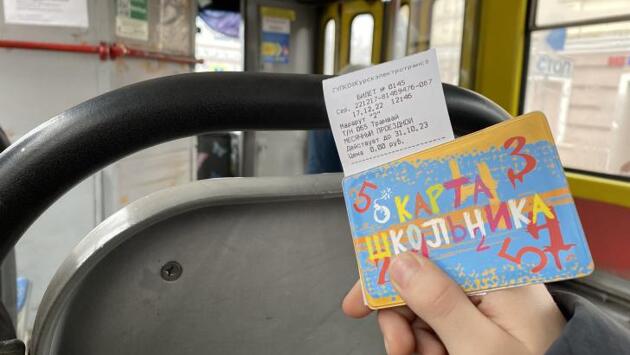 ГУПКО«Курскэлектротранс»
БИЛЕТ № 0145
Сея. 221217-81469476-067
17.12.22 12:46
Маршрут "2"
Т/Н 065 Трамвай
МЕСЯЧНЫЙ ПРОЕЗДНОЙ
Действует до 31.10.23
Цена 0.00 руб.
КАРТА
ШКОЛЬНИКА
СТОП